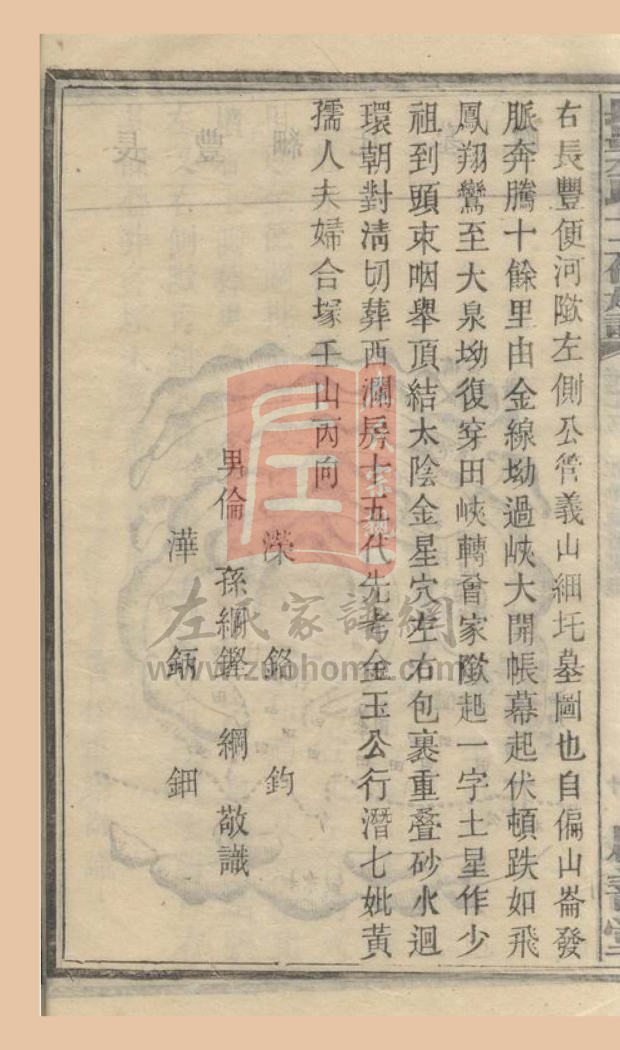 右長豐便河隞左側公管義山細圫墓圖也自偏山崙發
脈奔騰十餘里由金線坳過峽大開帳幕起伏頓跌如飛
鳳翔鸞至大泉坳復穿田峽轉曾家隞起一字土星作少
祖到頭束咽舉頂結太陰金星穴左右包裹重疊砂水迴
環朝對清切葬西瀾房十五代先考金玉公行潛七妣黃
孺人夫婦合塚壬山丙向
濚 鉻 鈞
男倫 孫綱鏗 綱 敬識
澕 鈵 鈿
左氏家譜網
www.zuohome.com